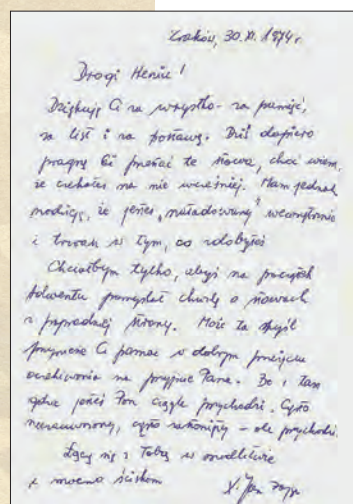 Kraków, 30.XI.1974 r.
Drogi Heniu!
Dziękuję Ci za wszystko - za pamięć,
za list i za postawę. Dziś dopiero
pragnę Ci przesłać te słowa, choć wiem,
że czekałeś na nie wcześniej. Mam jednak
nadzieję, że jesteś „naładowany" wewnętrznie
i trwasz w tym, co zdobyłeś
Chciałbym tylko, abyś na początek
Adwentu pomyślał chwilę o słowach
z poprzedniej strony. Może ta myśl
przyniesie Ci pomoc w dobrym przejściu
oczekiwania na przyjście Pana. Bo i tam
gdzie jesteś Pan ciągle przychodzi. Często
nieznany, często - ale przychodzi.
Łączę się z Tobą w modlitwie
i mocno ściskam
X. Jan